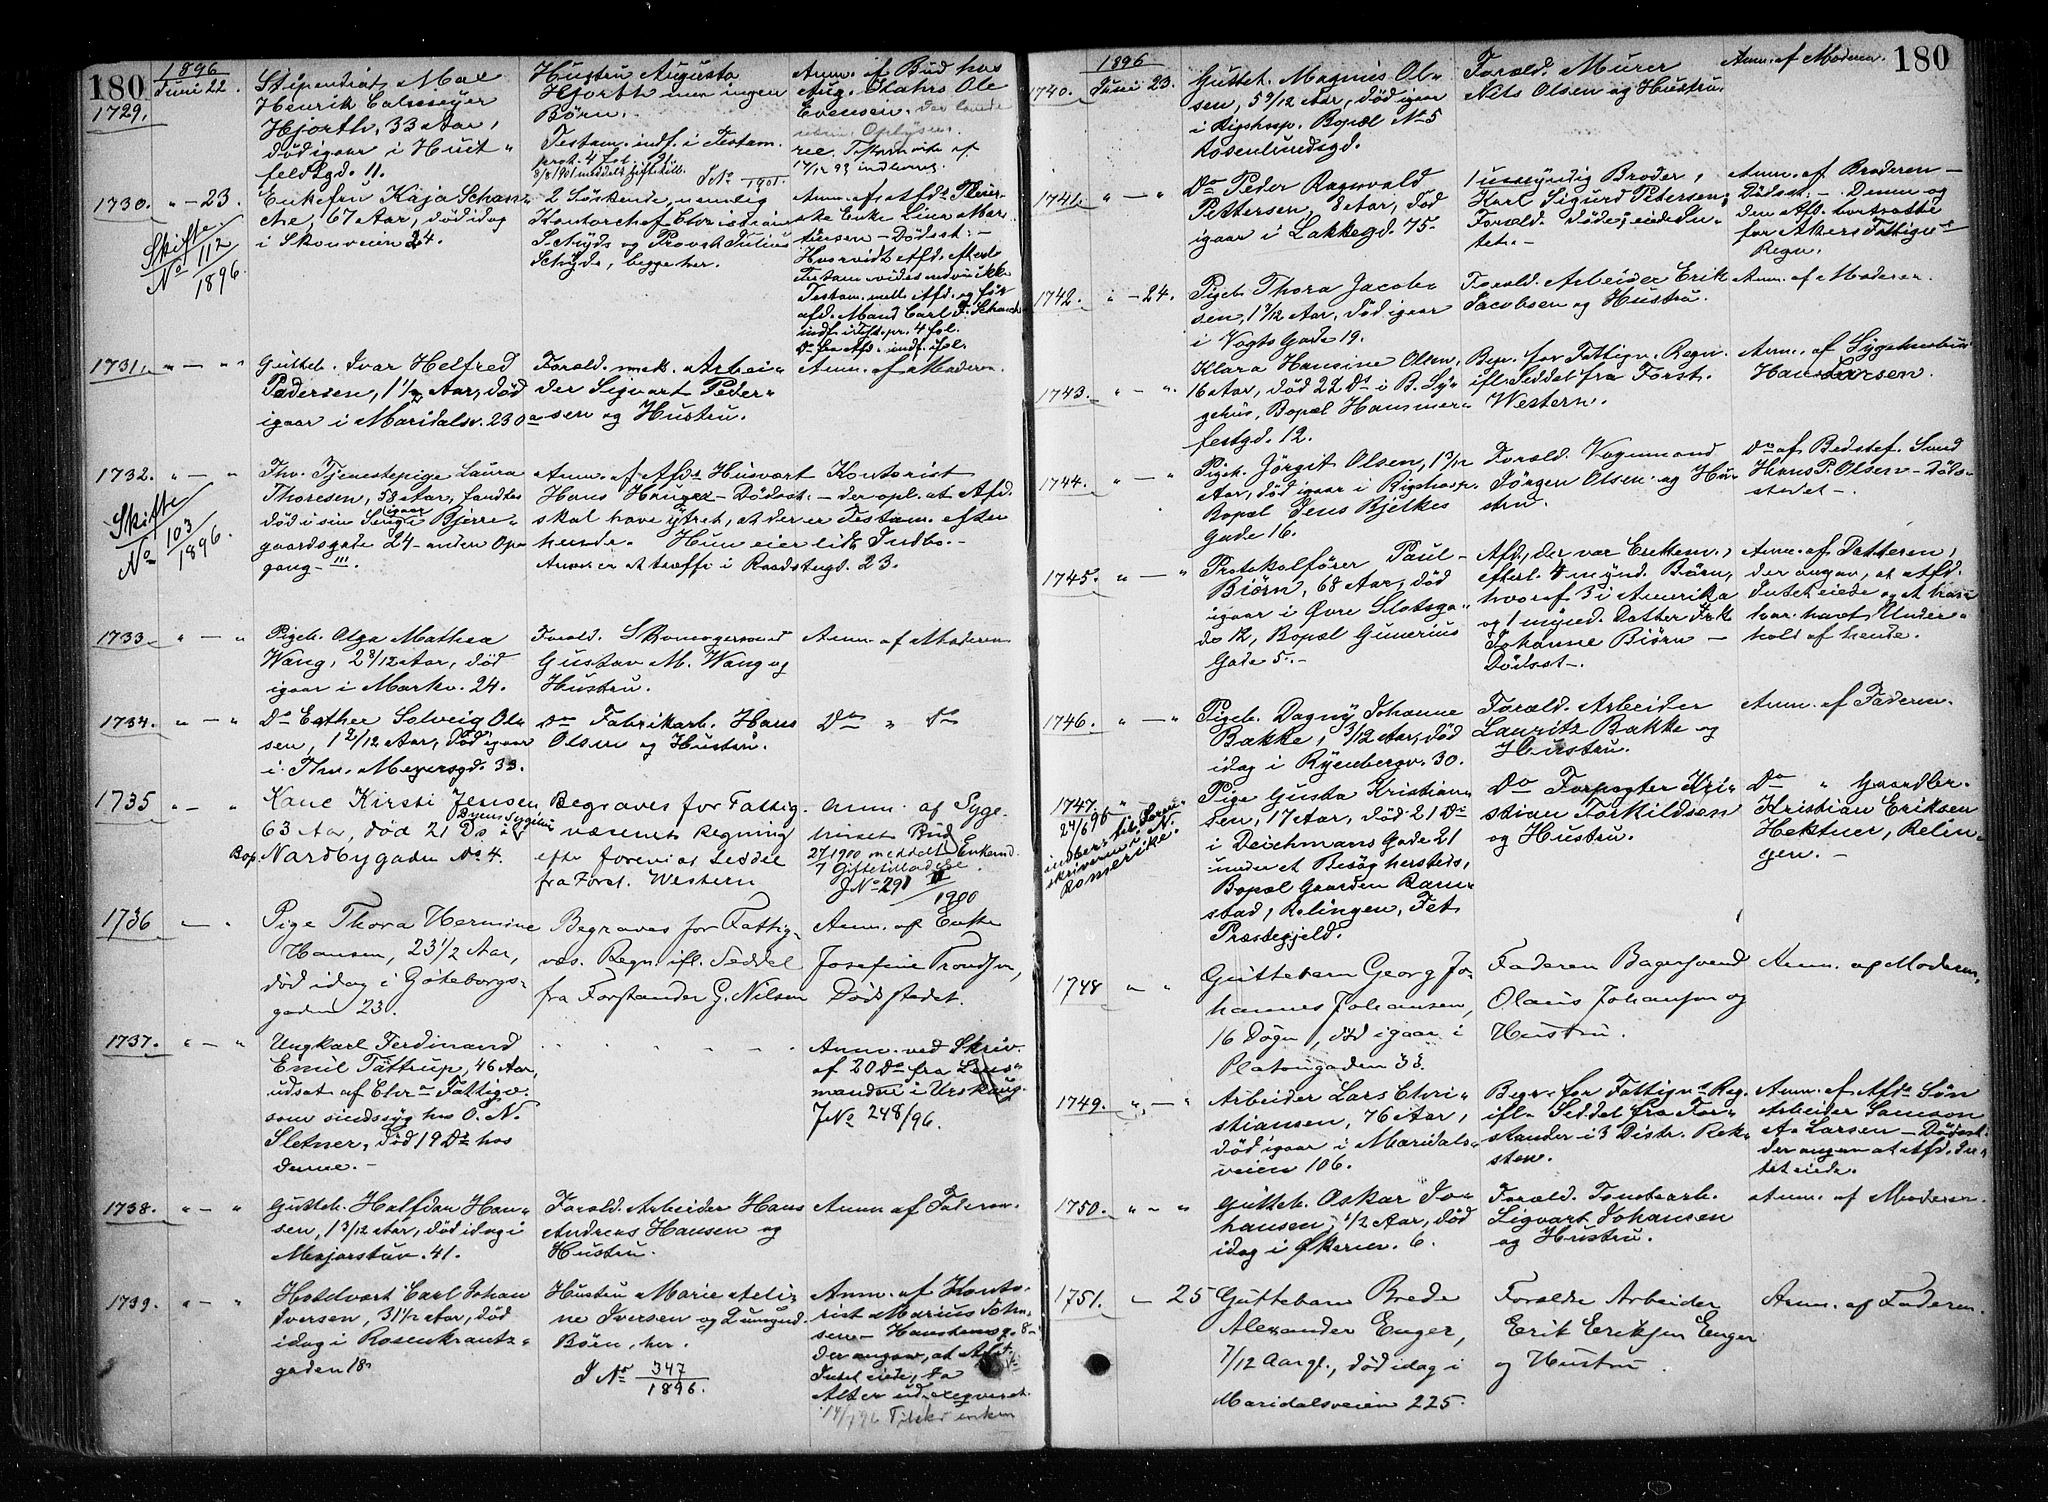 180
1896
1729.
Juni 22.
Stipendiat Max
Henrik
Hjorth, 33 Aar,
død igaar i Huit-
feldtgd. 11.
Hustru Augusta
Hjorth men ingen
Børn.
Testam. indf. i Testam.
prot. 4 fol. 121.
J No 1901.
Anm. af Bud hos
Aug. Ole
Evensen.
1730.
" - 23.
Skifte
No 112
1896
Enkefru Kaja Schan-
che, 67 Aar, død idag
i Skovveien 24.
2 Søskende, nemlig
Kontorchef Christian
og Provst Julius
begge her.
Anm. af Afdøs
Enke Lina Mar-
tinsen - Dødsst. -
Hvorvidt Afd. efterl.
Testam. vides endnu ikke
Testam. mell. Afd. og før
afd. Mand Carl F. Schanche
indf. i Test. pr. 4 fol.
Do fra Afd. indf. fol.
1731.
" - "
Gutteb. Ivar Helfred
Pedersen, 1 1/2 Aar, død
igaar i Maridalsv. 230 a
Foræld. Arbei-
der Sigvart Peder-
sen og Hustru.
Anm. af Moderen
1732.
" - "
Skifte
No 103
1896.
Fhv. Tjenestepige Laura
Thoresen, 58 Aar, fandtes
igaar
død i sin Seng i Bjerre-
gaardsgade 24 - anden Op-
gang - III.
Anm. af Afds Husvært Kontorist
Hans Hauger - Dødsst. - der opl. at Afd.
skal have ytret, at der er Testam. efter
hende. Hun eier lidt Indbo. -
Anm er at træffe i Raadstugd. 23.
1733.
" - "
Pigeb. Olga Mathea
Wang, 2 8/12 Aar, død
igaar i Markv. 24.
Foræld. Skomagersvend
Gustav M. Wang og
Hustru.
Anm. af Moderen
1734.
" - "
Do Esther Solveig Ol-
sen, 1 2/12 Aar, død igaar
i Thv. Meyersgd. 33.
Do Fabrikarb. Hans
Olsen og Hustru.
Do " Do
1735
" - "
Kone Kirsti Jensen
63 Aar, død 21 Ds i Byens Sygehus
Bop. Nordbygaden No 4.
Begraves for Fattig-
væsenets Regning
efter forevist Seddel
fra Forst. Western
Anm. af Syge-
huset Bud
27/ 1900 meddelt Enkemd.
Giftetilladelse
J No 291 II
1900
1736
" - "
Pige Thora Hermine
Hansen, 23 1/2 Aar,
død idag i Göteborgs-
gaden 23.
Begraves for Fattig-
væs. Regn. ifl. Seddel
fra Forstander G. Nilsen
Anm. af Enke
Josefine Trondsen,
Dødsstedet.
1737.
" - "
Ungkarl Ferdinand
Emil Tättrup, 46 Aar,
udsat af Chra Fattigv.
som sindssyg hos O. N.
Sletner, død 19 Ds hos
denne. -
Anm. ved Skriv.
af 20 Ds fra Lens-
manden i Urskoug.
J No 248/96.
1738.
" - "
Gutteb. Halfdan Han-
sen, 1 3/12 Aar, død idag i
Majorstuv. 41.
Foræld. Arbeider Hans
Andreas Hansen og
Hustru.
Anm. af Faderen.
1739.
" - "
Hotelvært Carl Johan
Iversen, 31 1/2 Aar, død
idag i Rosenkrantz-
gaden 18.
Hustru Marie Aeli-
ne Iversen og 2 umynd.
Børn, her.
J No 347
1896.
Anm. af Konto-
rist Marius John-
sen -
der angav, at Afd.
Intet eiede, da
Alt er udexeqveret.
14/7 96 Tilskr. enken
180
1896
1740.
Juni 23.
Gutteb. Magnus Ol-
sen, 5 9/12 Aar, død igaar
i Rigshosp. Bopæl No 5
Rosenlundsgd.
Foræld. Murer
Nils Olsen og Hustru.
Anm. af Moderen.
1741.
" - "
Do Peder Ragnvald
Pettersen, 8 Aar, død
igaar i Lakkegd. 75.
1 umyndig Broder,
Karl Sigurd Petersen,
Foræld. døde; eiede In-
tet. -
Anm. af Broderen -
Dødsst. - Denne og
den Afd. bortsatte
for Akers Fattigvs
Regn.
1742.
" - 24.
Pigeb. Thora Jacob-
sen, 1 1/12 Aar, død igaar
i Vogts Gade 19.
Foræld. Arbeider Erik
Jacobsen og Hustru.
Anm. af Moderen
1743.
" - "
Klara Hansine Olsen,
16 Aar, død 22 Ds i B. Sy-
gehus, Bopæl Hammer-
festgd. 12.
Begr. for Fattigv. Regn.
ifl. Seddel fra Forst.
Western.
Anm. af Sygehusbud
Hans Larsen.
1744.
" - "
Pigeb. Jörgit Olsen, 1 3/12
Aar, død igaar i Rigshosp.
Bopæl Jens Bjelkes
Gade 16.
Foræld. Vognmand
Jörgen Olsen og Hu-
stru.
Do af Bedstef. Smed
Hans P. Olsen - Døds-
stedet -.
1745.
" - "
Protokolfører Paul
Biörn, 68 Aar, død
igaar i Øvre Slotsga-
de 12, Bopæl Gunerius
Gade 5. -
Afd., der var Enkem.,
efterl. 4 mynd. Børn,
hvoraf 3 i Amerika
og 1 mynd. Datter Frk
Johanne Biörn -
Dødsst -.
Anm. af Datteren,
der angav, at Afd.
Intet eiede og at han
har havt Under-
hold af hende.
1746.
" - "
Pigeb. Dagny Johanne
Bakke, 3/12 Aar, død
idag i Ryenbergv. 30.
Foræld. Arbeider
Lauritz Bakke og
Hustru.
Anm. af Faderen.
1747.
24/6 96
indber. til Soren-
skriveren i N.
Romerike.
Pige Gusta Kristian-
sen, 17 Aar, død 21 Ds
i Deichmans Gade 21
under et Besøg hersteds,
Bopæl Gaarden Ram-
stad, Relingen, Fet
Præstegjeld.
Do Forpagter Kri-
stian Torkildsen
og Hustru.
Do " Gaardbr.
Kristian Eriksen
Hektner, Relin-
gen. -
1748
" "
Guttebarn Georg Jo-
hannes Johansen,
16 Døgn, død igaar i
Platougaden 33.
Faderen Bagersvend
Olaus Johansen og
Hustru.
Anm. af Moderen,
1749.
" - "
Arbeider Lars Chri-
stiansen, 76 Aar,
død igaar i Maridals-
veien 106.
Begr. for Fattigvs Reg.
ifl. Seddel fra For-
stander i 3 Distr. Rek-
sten.
Anm. af Afds Søn
Arbeider Samson
A. Larsen - Dødsst.
der angav at Afd. In-
tet eiede.
1750.
" - "
Gutteb. Oskar Jo-
hansen, 1/2 Aar, død
idag i Økernv. 6.
Foræld. Tomtearb.
Sigvart Johansen
og Hustru.
Anm. af Moderen.
1751.
- 25
Guttebarn Brede
Alexander Enger,
7/12 Aar gl., død idag i
Maridalsveien 225.
Forældre Arbeider
Erik Eriksen Enger
og Hustru.
Anm. af Faderen.